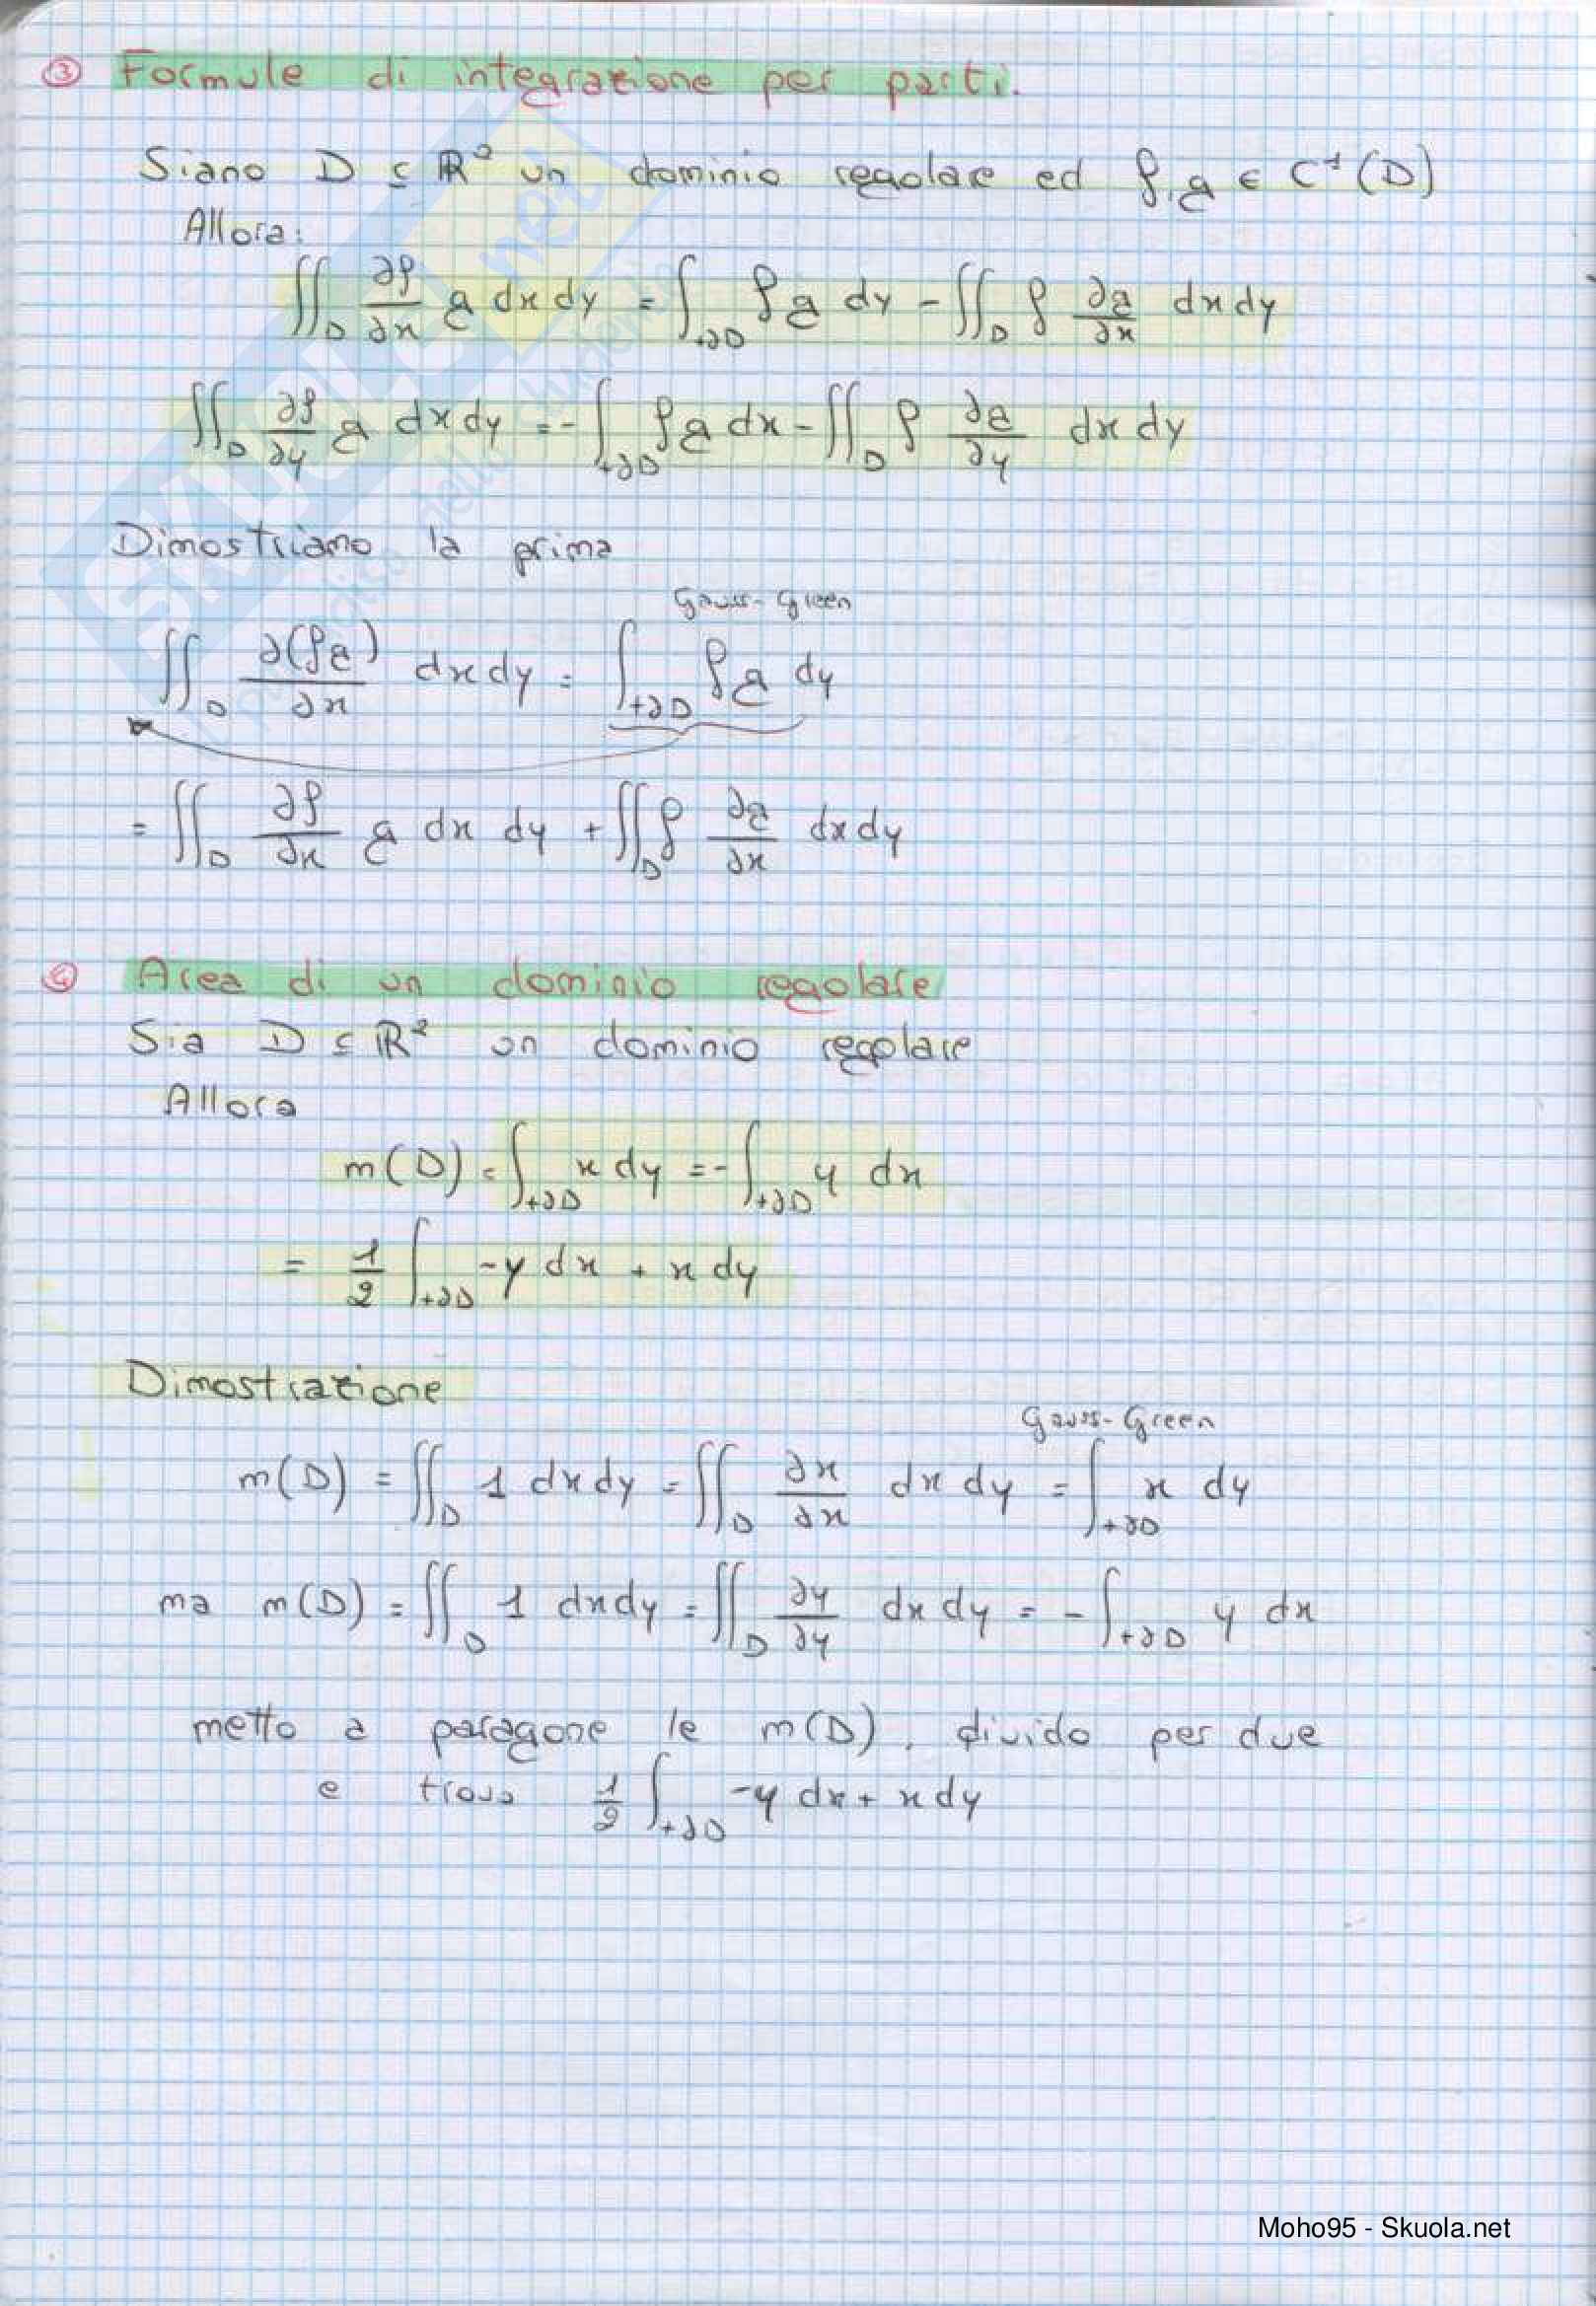 ③ Formule di integrazione per parti.
Siano D ⊆ ℝ² un dominio regolare ed f,g ∈ C¹(D)
Allora:
∬_D ∂f/∂x g dx dy = ∫_{+∂D} f g dy - ∬_D f ∂g/∂x dx dy
∬_D ∂f/∂y g dx dy = - ∫_{+∂D} f g dx - ∬_D f ∂g/∂y dx dy
Dimostriamo la prima
Gauss-Green
∬_D ∂(fg)/∂x dx dy = ∫_{+∂D} f g dy
= ∬_D ∂f/∂x g dx dy + ∬_D f ∂g/∂x dx dy
④ Area di un dominio regolare
Sia D ⊆ ℝ² un dominio regolare
Allora
m(D) = ∫_{+∂D} x dy = - ∫_{+∂D} y dx
= 1/2 ∫_{+∂D} -y dx + x dy
Dimostrazione
Gauss-Green
m(D) = ∬_D 1 dx dy = ∬_D ∂x/∂x dx dy = ∫_{+∂D} x dy
ma m(D) = ∬_D 1 dx dy = ∬_D ∂y/∂y dx dy = - ∫_{+∂D} y dx
metto a paragone le m(D), divido per due
e trovo 1/2 ∫_{+∂D} -y dx + x dy
SKUOLA.net
Moho95 - Skuola.net